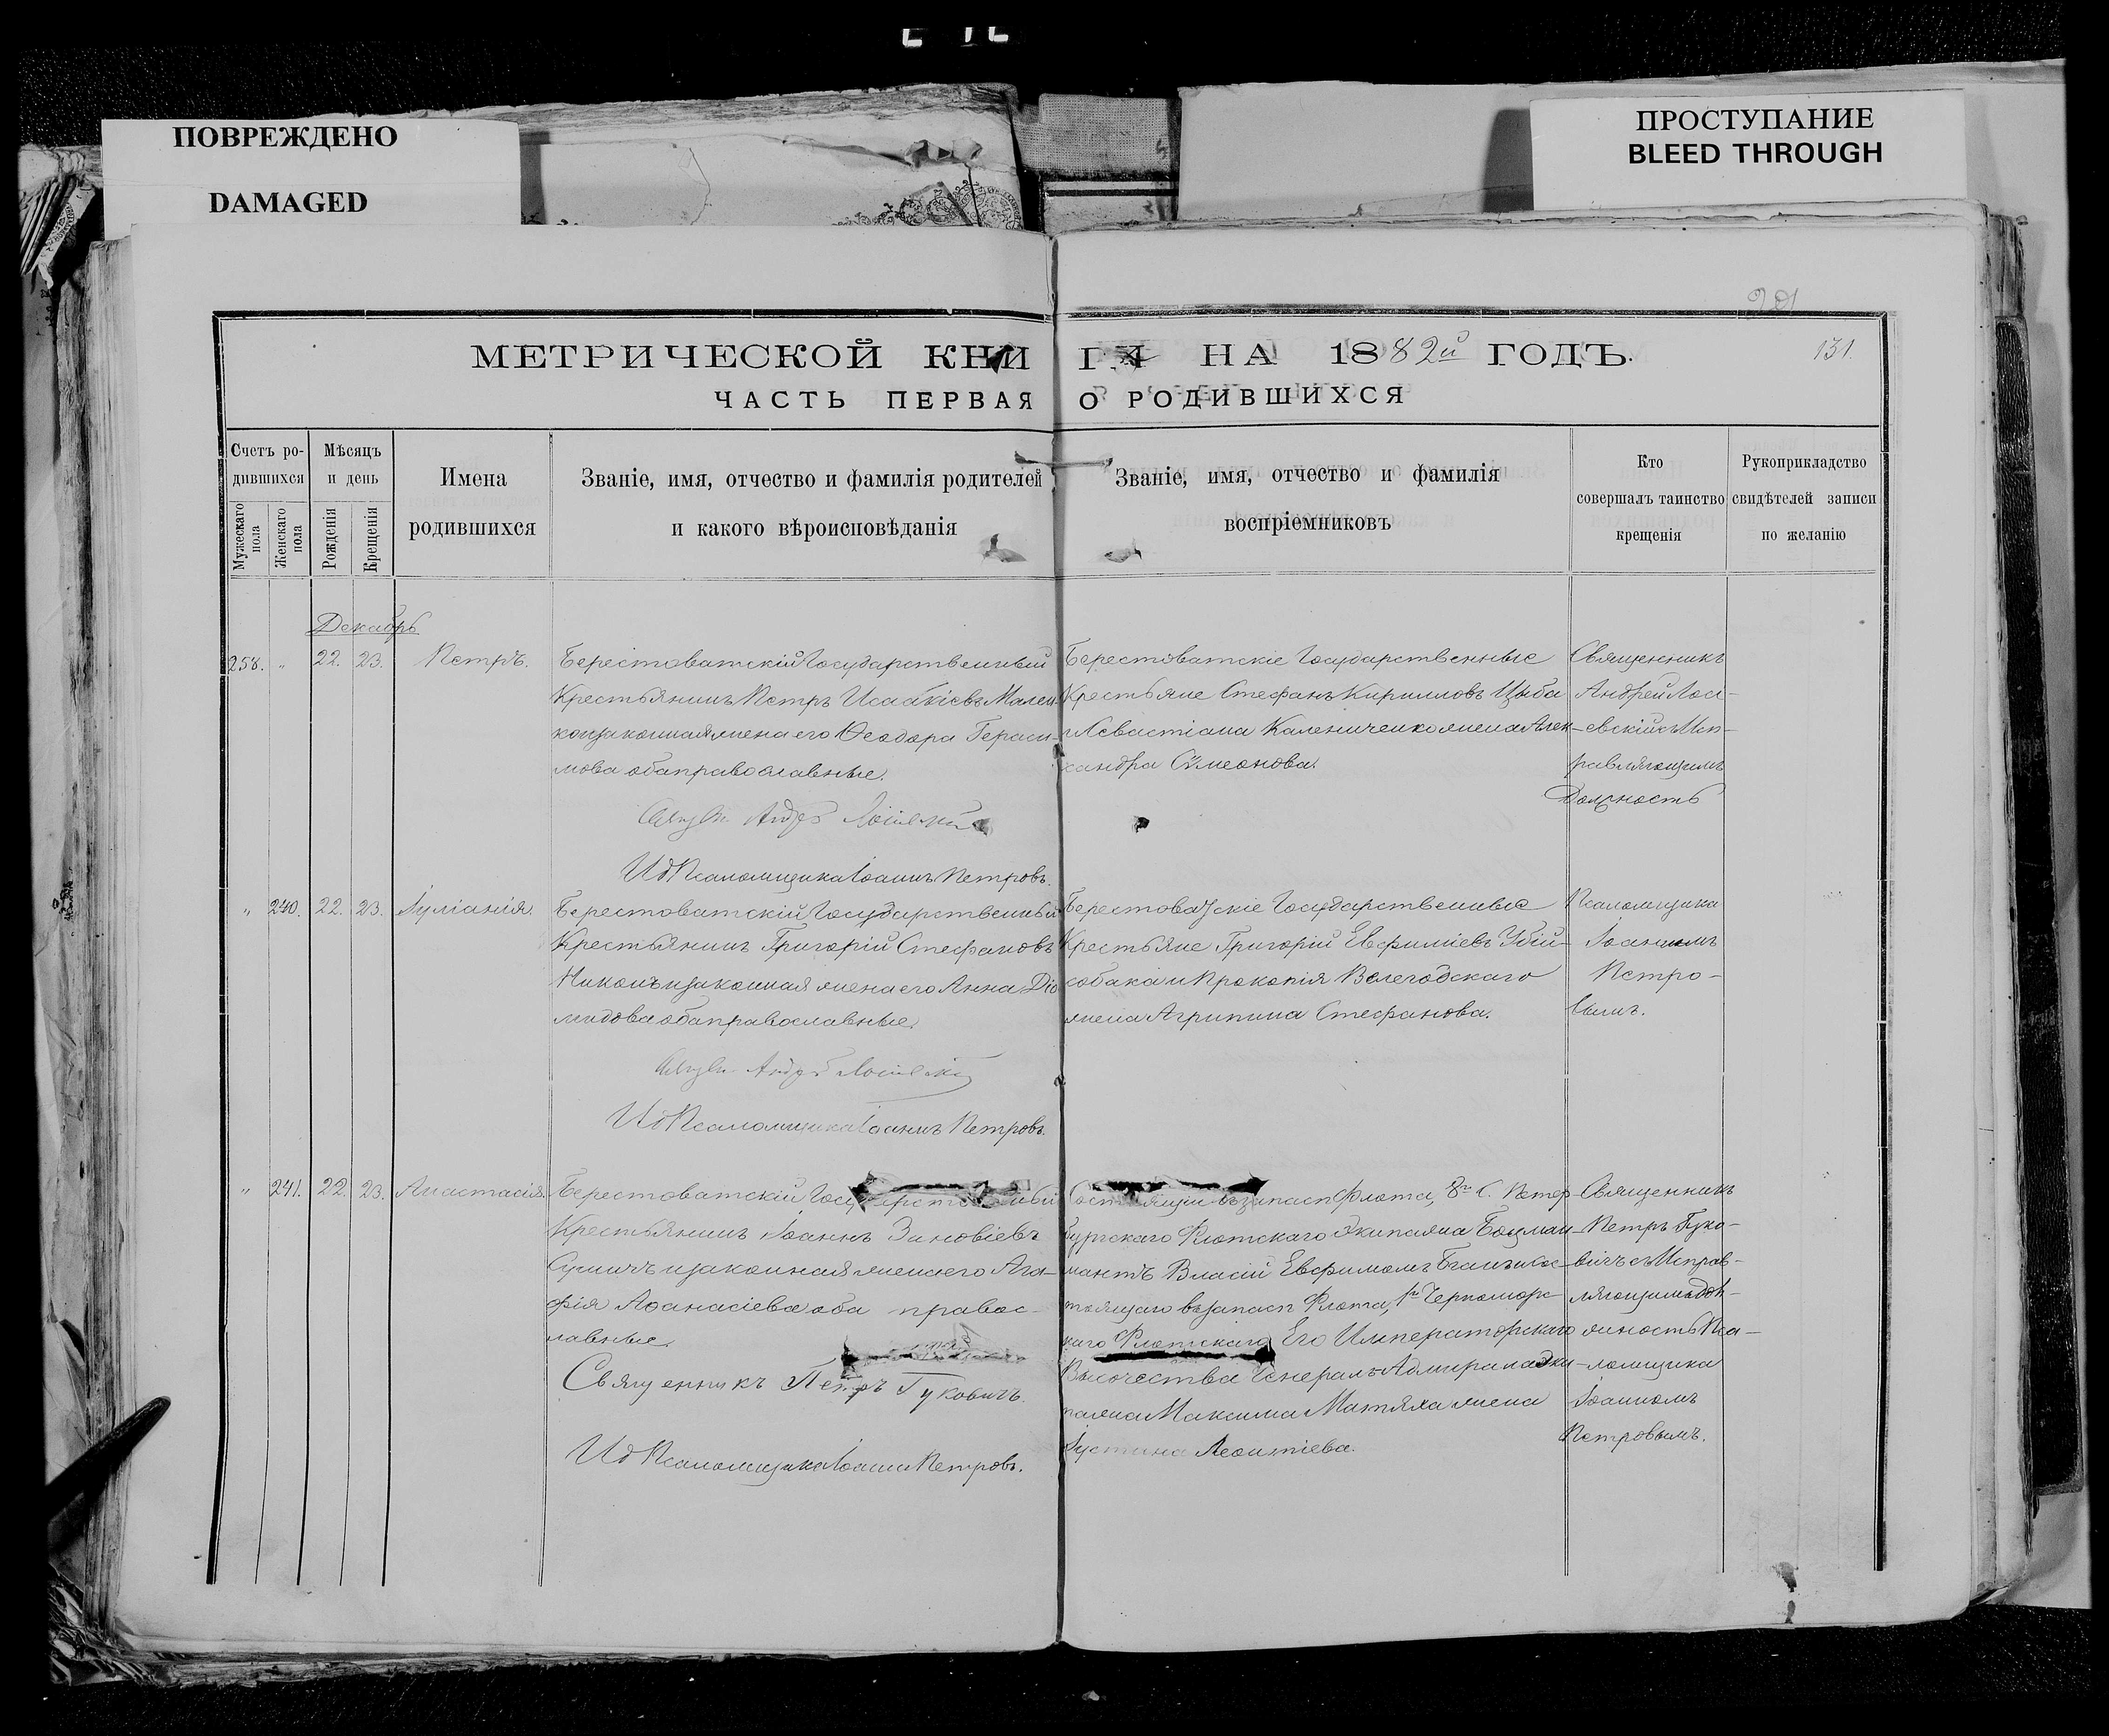 ПОВРЕЖДЕНО
DAMAGED
ПРОСТУПАНИЕ
BLEED THROUGH
МЕТРИЧЕСКОЙ КНИГИ НА 1882й ГОДЪ.
131.
ЧАСТЬ ПЕРВАЯ О РОДИВШИХСЯ
Счетъ родившихся
Мужескаго пола
Женскаго пола
Мѣсяцъ и день
Рожденія
Крещенія
Имена
родившихся
Званіе, имя, отчество и фамилія родителей
и какого вѣроисповѣданія
Званіе, имя, отчество и фамилія
воспріемниковъ
Кто
совершалъ таинство
крещенія
Рукоприкладство
свидѣтелей записи
по желанію
Декабрь
258. " 22. 23. Петръ.
Берестоватскій Государственный
Крестьянинъ Петръ Исаакіевъ Мален-
ко и законная жена его Ѳеодора Гераси-
мова оба православные.
Андрей
И д Псаломщика Іоаннъ Петровъ.
Берестоватскіе Государственные
Крестьяне Стефанъ Кирилловъ Цыба
и Севастіана Калениченко жена Алек-
сандра Сѵмеонова.
Священникъ
Андрей
съ Исп-
равляющимъ
Должность
" 240. 22. 23. Іуліанія.
Берестоватскій Государственный
Крестьянинъ Григорій Стефановъ
и законная жена его Анна Діо
мидова оба православные.
Андрей
И д Псаломщика Іоаннъ Петровъ.
Берестоватскіе Государственные
Крестьяне Григорій Евфиміевъ Убій-
собака и Прокопія Велегодскаго
жена Агрипина Стефанова.
Псаломщика
Іоанномъ
Петро-
вымъ.
" 241. 22. 23. Анастасія.
Берестоватскій
Крестьянинъ Іоаннъ Зиновіевъ
и законная жена его Ага-
фія Аѳанасіева оба правос-
лавные.
Священникъ Петръ Гуковичъ.
И д Псаломщика Іоаннъ Петровъ.
въ запасѣ Флота, 8го С. Петер-
бургскаго Флотскаго Экипажа Боцман-
матъ Власій Евфимовъ и Сос-
тоящаго въ запасѣ Флота, 1го Черноморс
каго Флотскаго Его Императорскаго
Высочества Генералъ Адмирала Эки-
пажа Максима Матяха жена
Іустина Леонтіева.
Священникъ
Петръ Гуко-
вичъ съ Исправ-
ляющимъ дол-
жность Пса-
ломщика
Іоанномъ
Петровымъ.